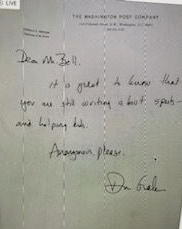 LIVE
THE WASHINGTON POST COMPANY
Dear Mr. Bell.
it is great to know that
you are still writing about sports —
and helping kids.
Anonymous, please.
Don Graham